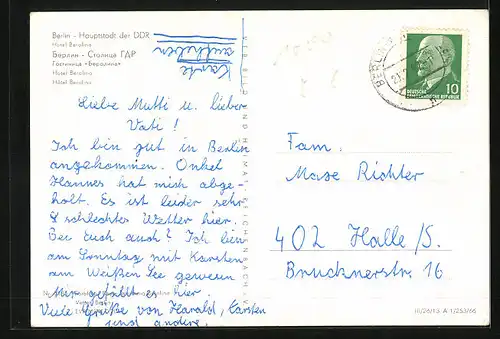 Berlin - Hauptstadt der DDR
Hotel Berolina
Берлин - Столица ГДР
Гостиница «Беролина»
Hotel Berolina
Hôtel Berolina
Karte
aufheben
Liebe Mutti u. lieber
Vati!
Ich bin gut in Berlin
angekommen. Onkel
Hannes hat mich abge-
holt. Es ist leider sehr
schlechtes Wetter hier.
Bei Euch auch? Ich bin
am Sonntag mit Karsten
am Weißen See gewesen
Mir gefällt es hier.
Viele Grüße von Harald, Karsten
und andere.
VEB BILD UND HEIMAT REICHENBACH
BERLIN
DEUTSCHE
DEMOKRATISCHE REPUBLIK
10
Fam.
Max Richter
402 Halle/S.
Brucknerstr. 16
III/26/13 A 1/253/66